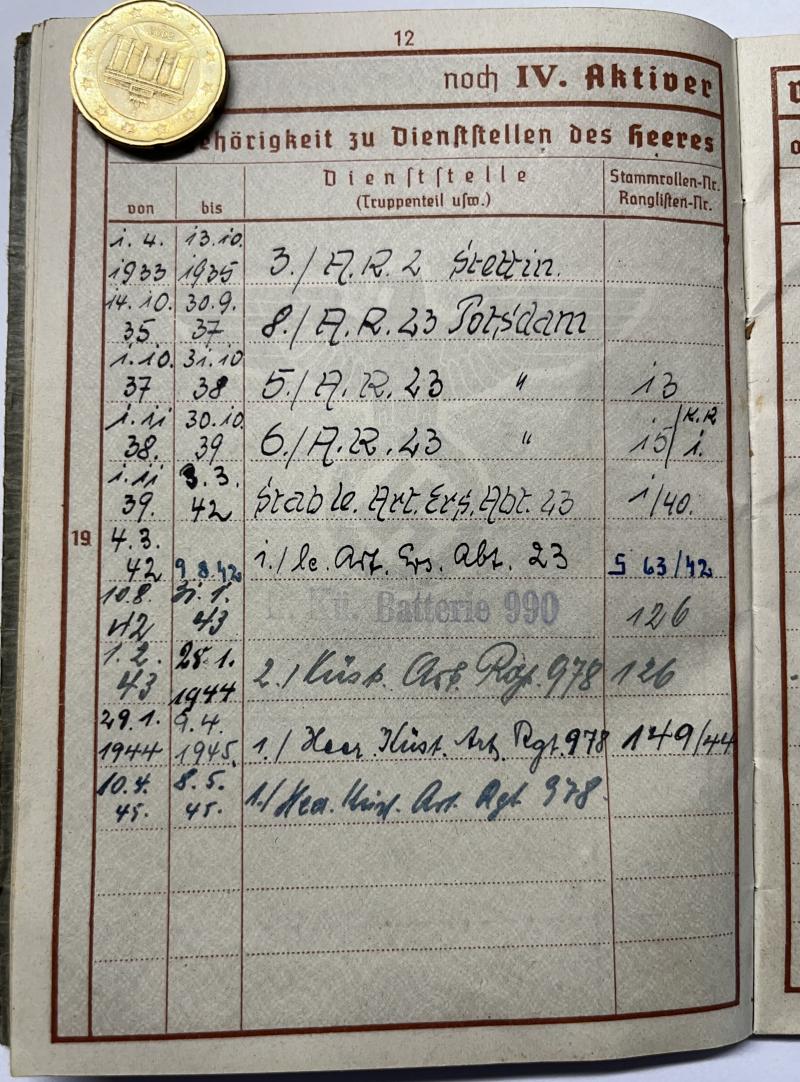 12
noch IV. Aktiver
ehörigkeit zu Dienststellen des Heeres
von bis Dienststelle (Truppenteil usw.) Stammrollen-Nr. Ranglisten-Nr.
1.4. 13.10.
1933 1935 3./A.R. 2 Stettin.
14.10. 30.9.
35 37 8./A.R. 23 Potsdam
1.10. 31.10
37 38 5./A.R. 23 " 13
1.11 30.10. K.R.
38. 39 6./A.R. 23 " 15/1.
1.11 3.3.
39. 42 Stab le. Art. Ers. Abt. 23 1/40.
19
4.3.
42 9 8 42 1./le. Art. Ers. Abt. 23 S 63/42
10.8. 31.1.
42 43 Kü. Batterie 990 126
1.2. 28.1.
43 1944 2./Küst. Art. Rgt. 978 126
29.1. 9.4.
1944 1945. 1./Heer Küst. Art. Rgt. 978 149/44
10.4. 8.5.
45. 45. 1./Heer. Küst. Art. Rgt 978.